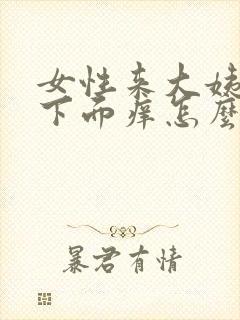 女性来大姨
下面痒怎麼
暴君有情